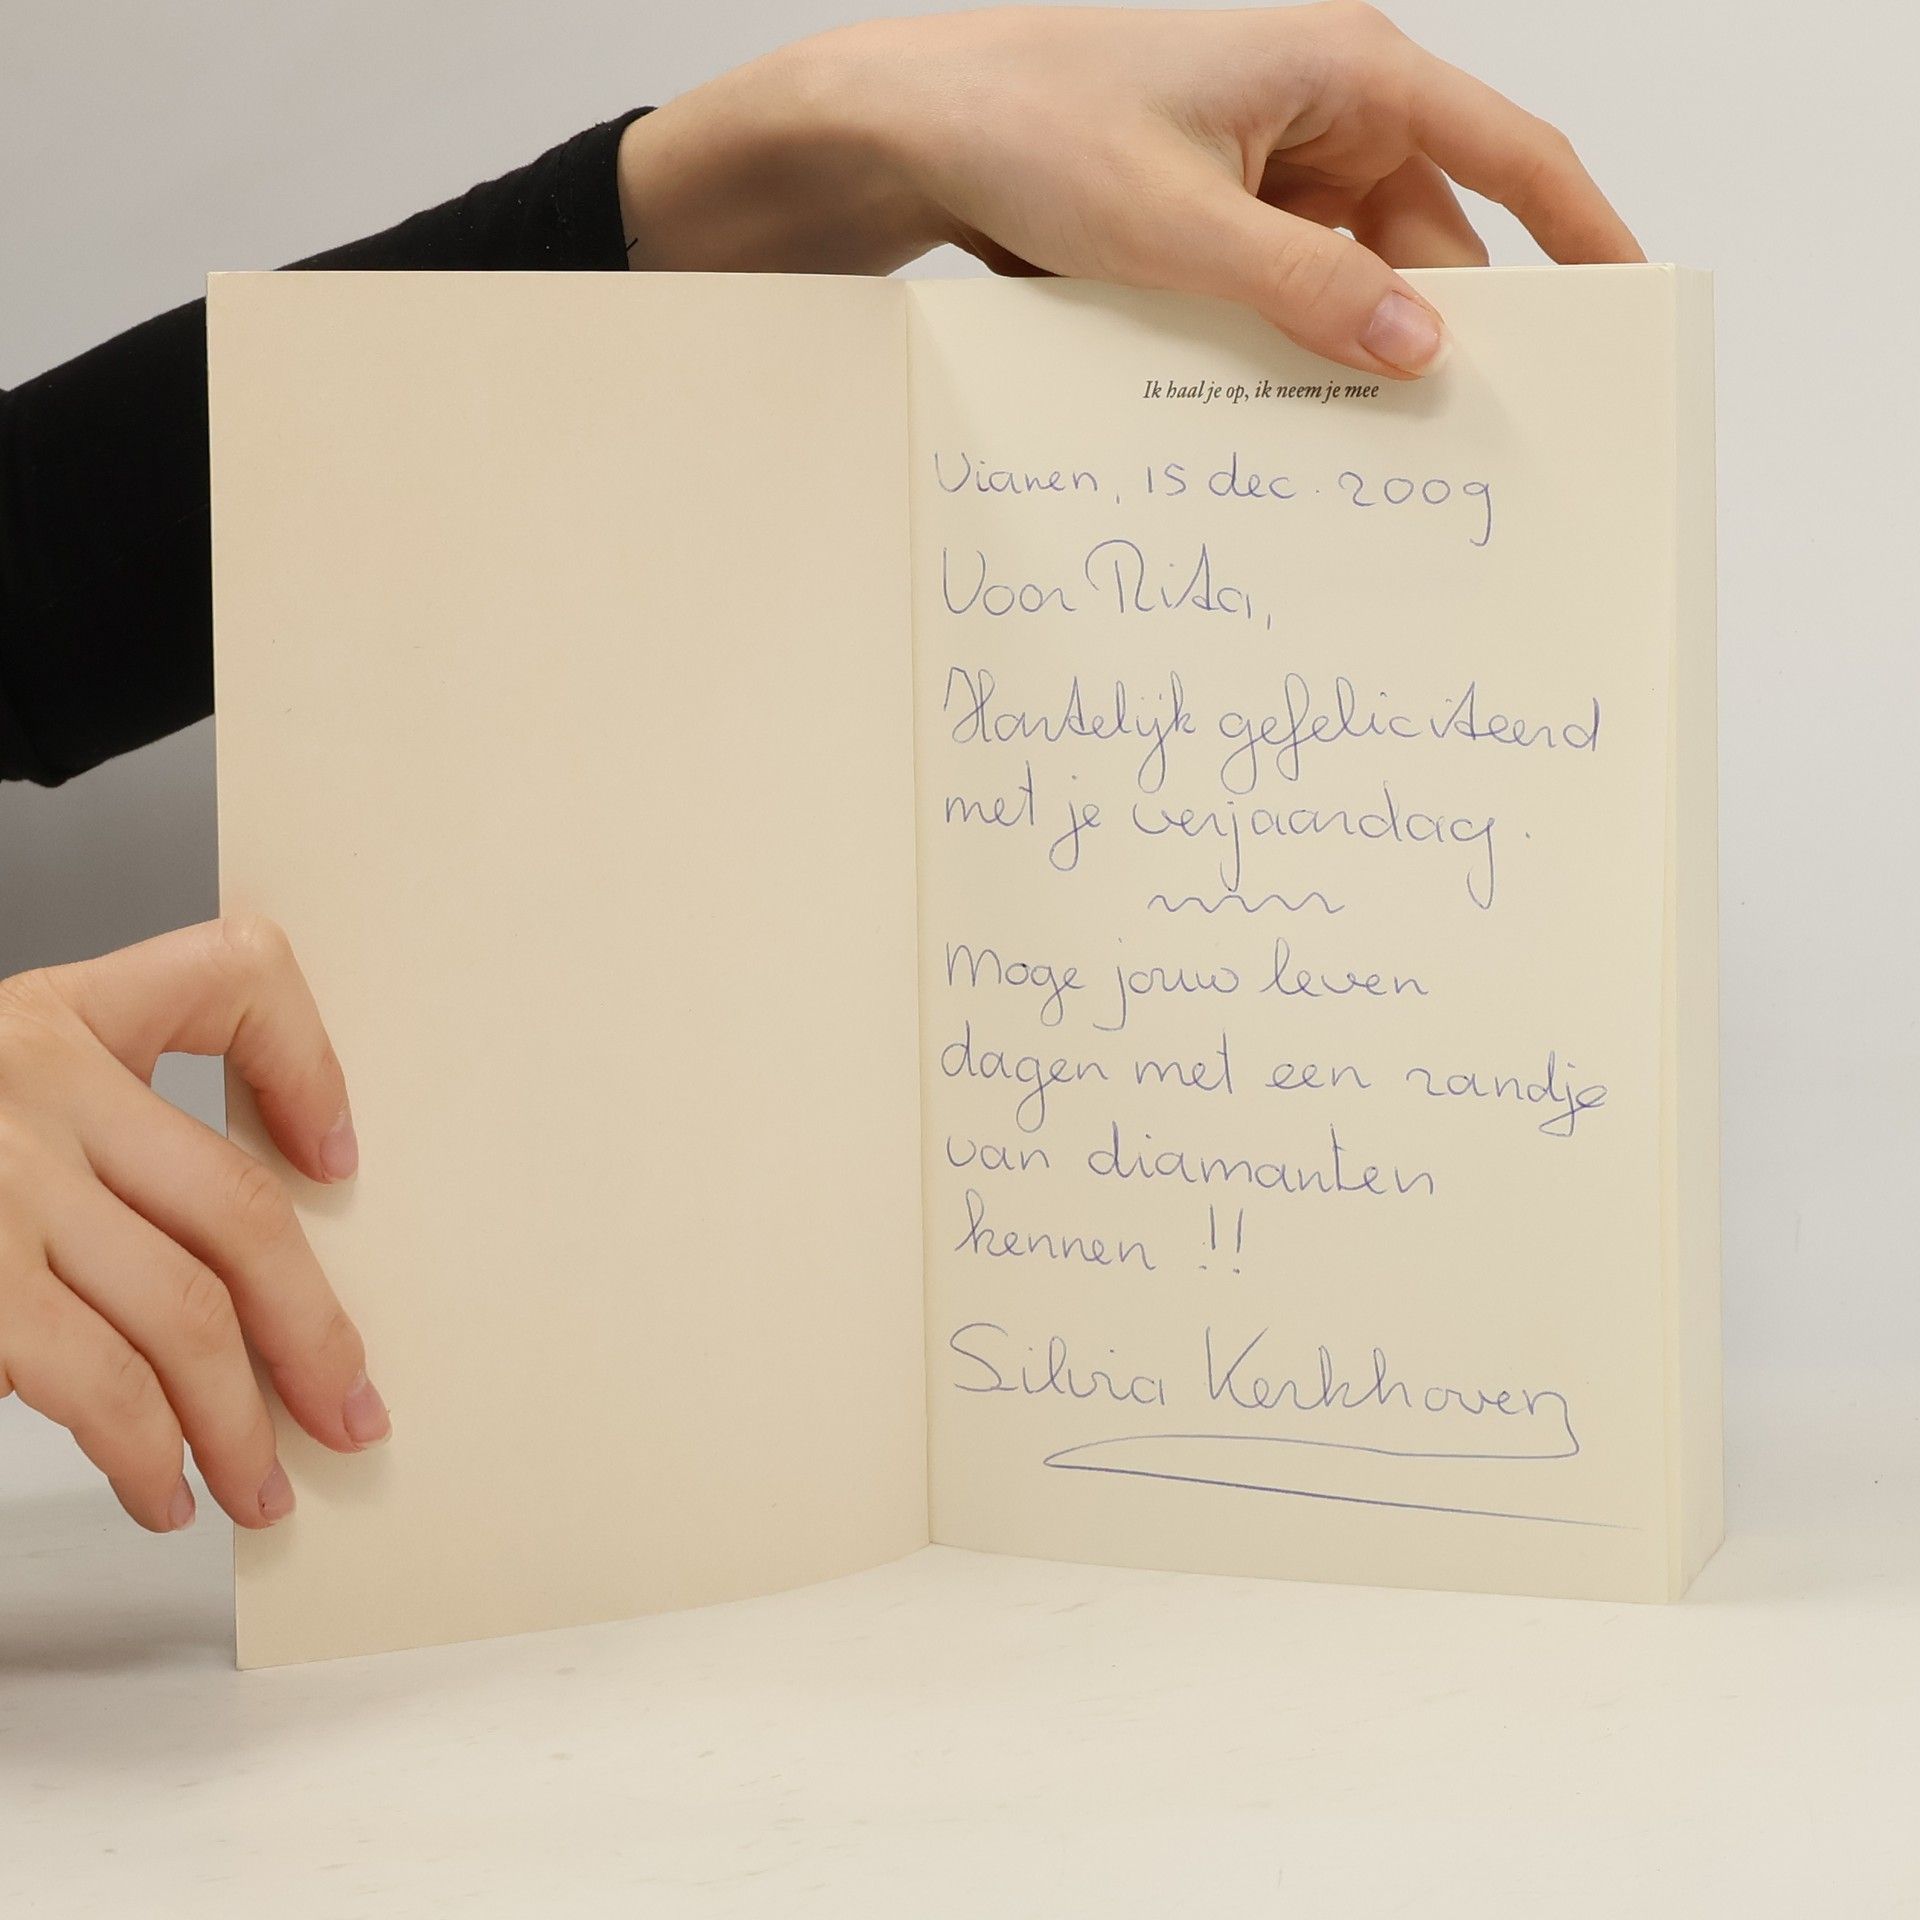 Ik haal je op, ik neem je mee
Vianen, 15 dec. 2009
Voor Rita,
Hartelijk gefeliciteerd
met je verjaardag.
Moge jouw leven
dagen met een randje
van diamanten
kennen !!
Silvia Kerkhoven